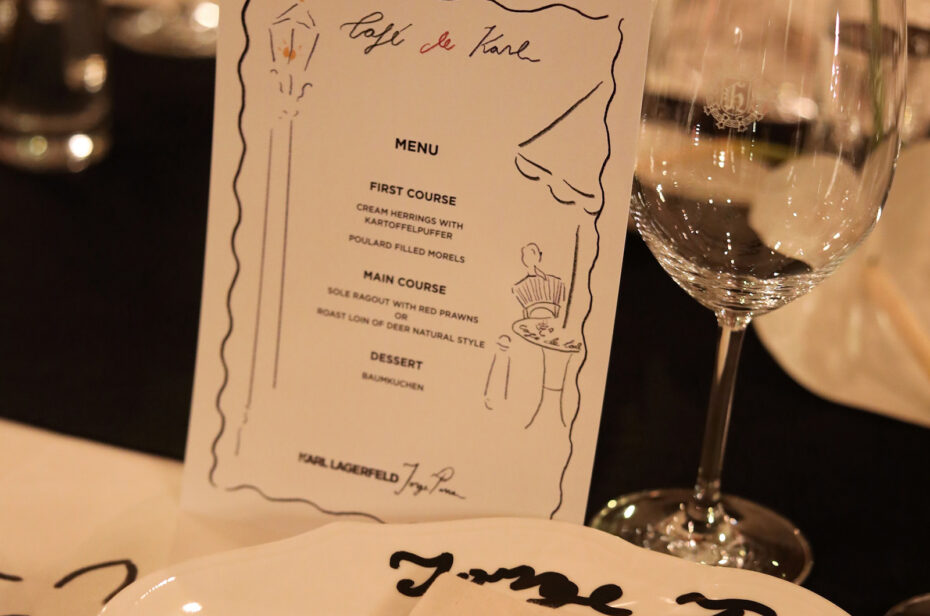 Café de Karl
MENU
FIRST COURSE
CREAM HERRINGS WITH
KARTOFFELPUFFER
POULARD FILLED MORELS
MAIN COURSE
SOLE RAGOUT WITH RED PRAWNS
OR
ROAST LOIN OF DEER NATURAL STYLE
DESSERT
BAUMKUCHEN
KARL LAGERFELD